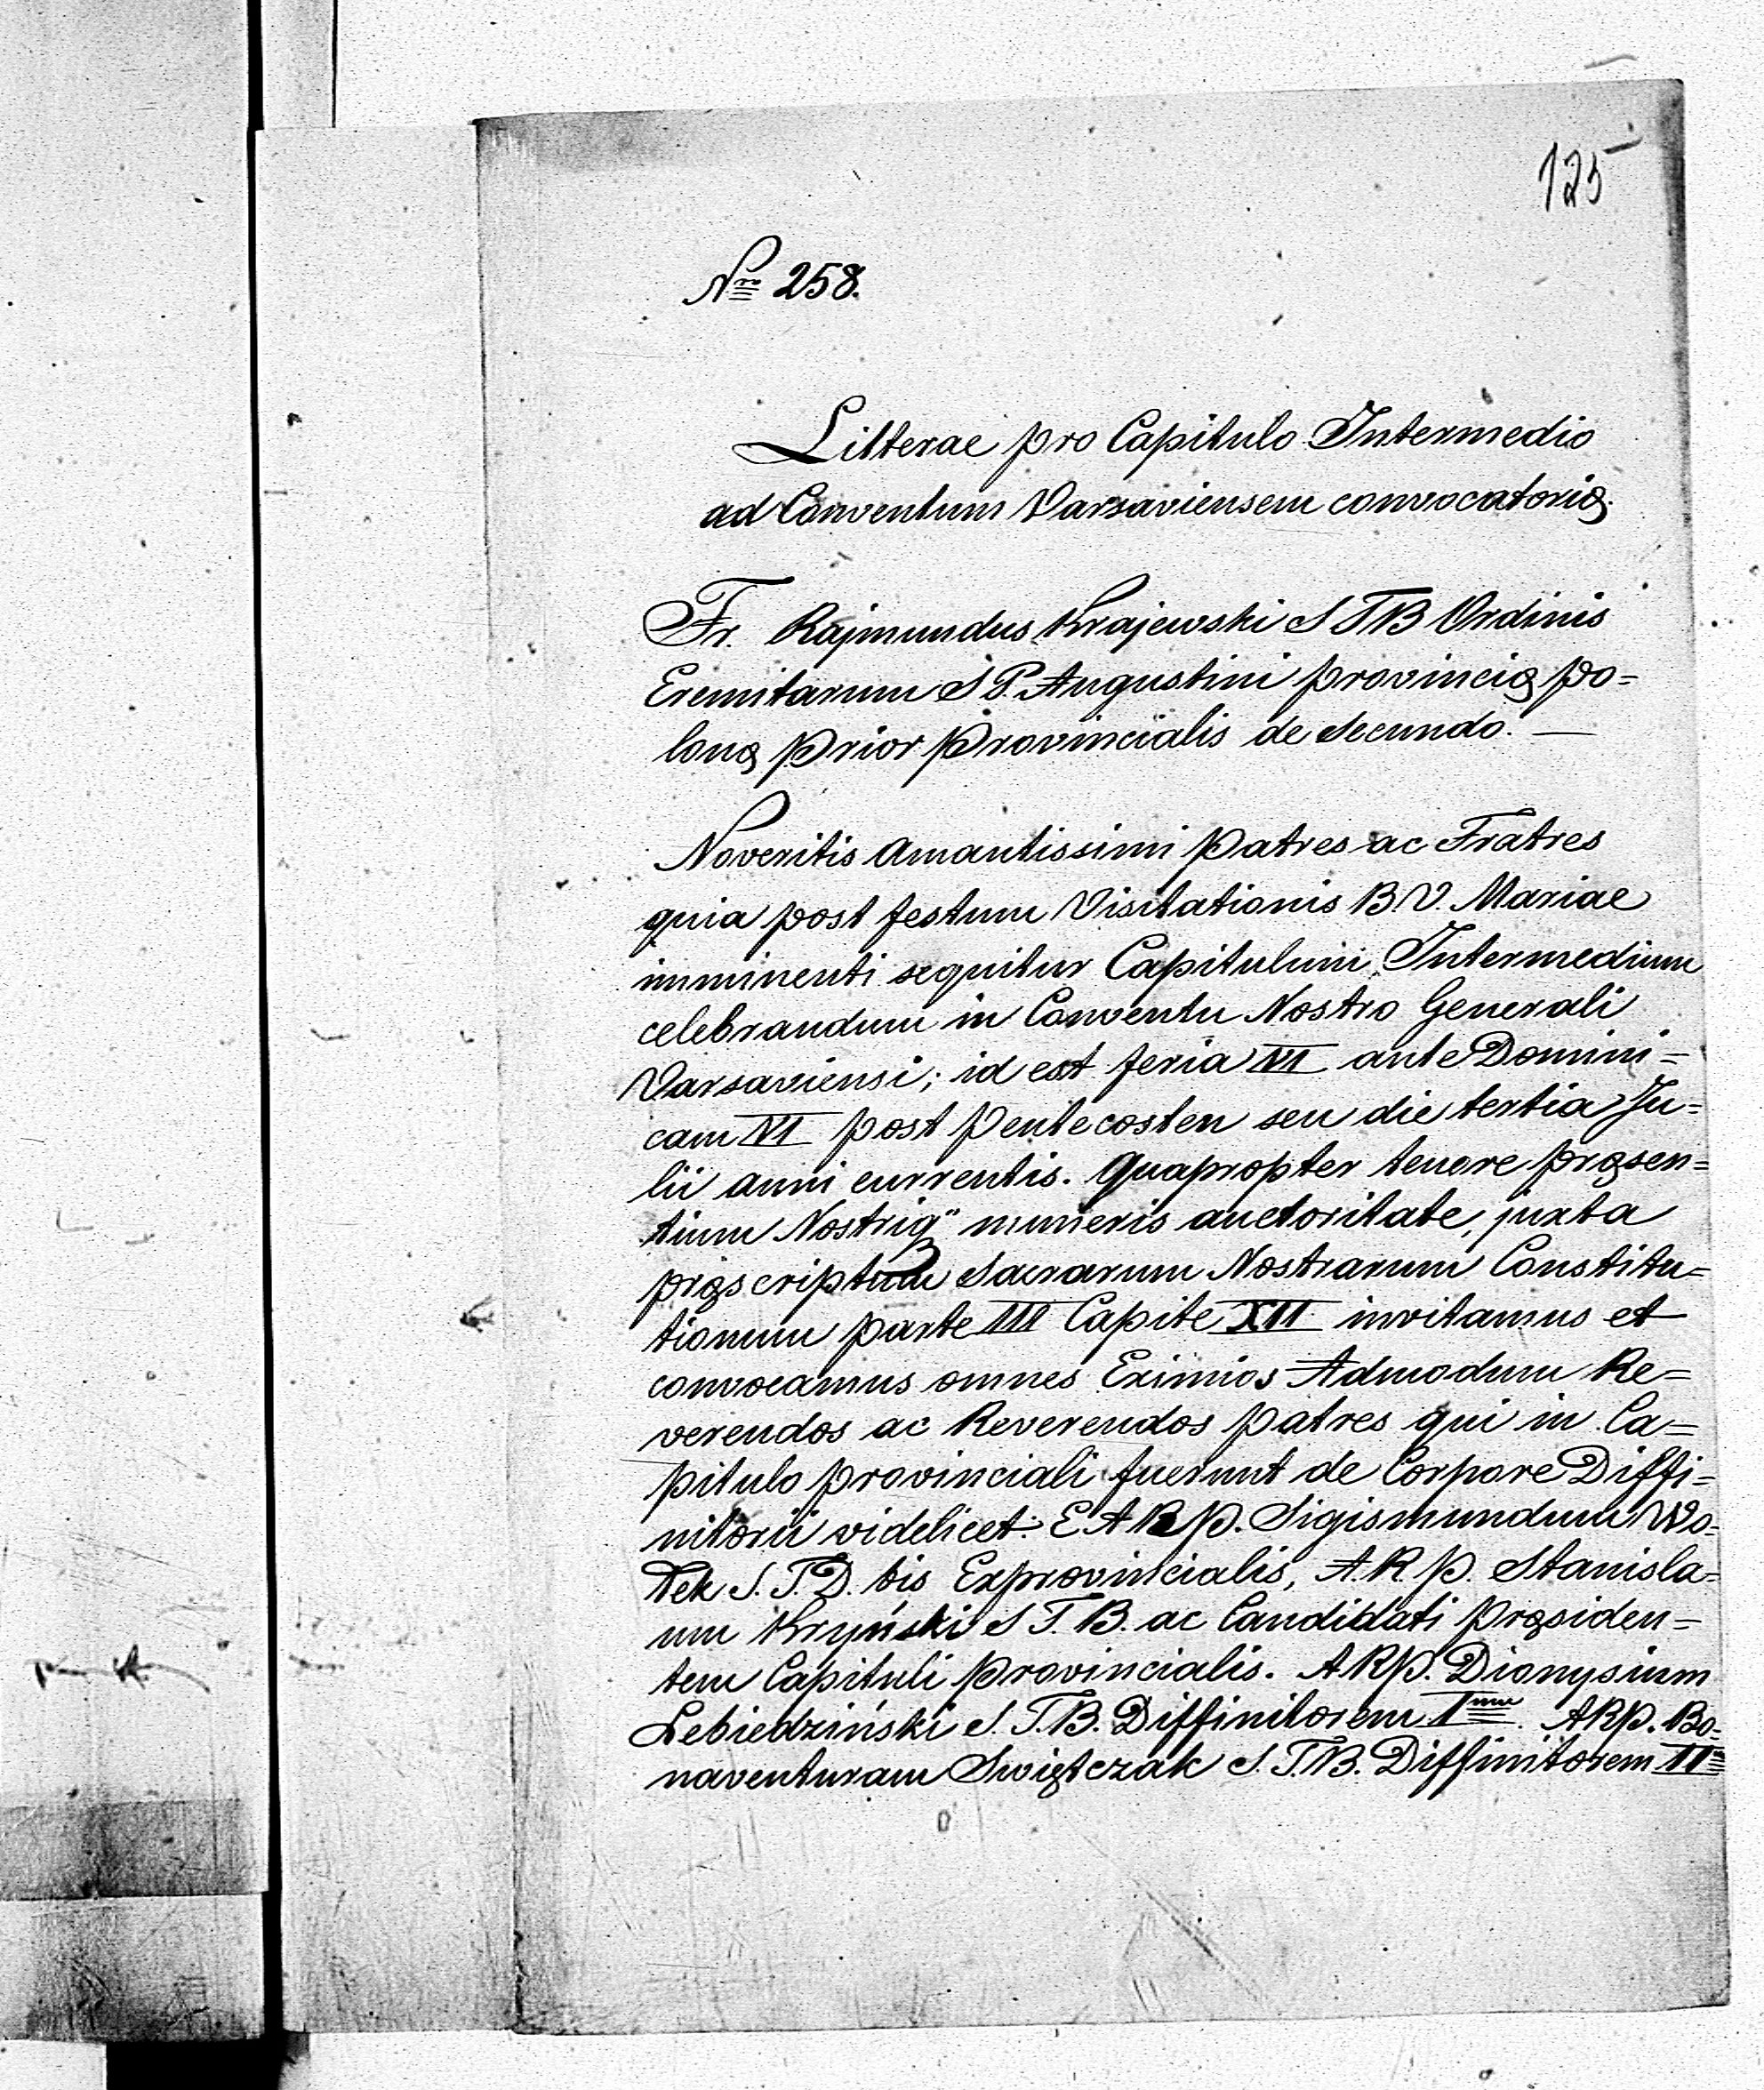 125
Nro 258.
Litterae pro Capitulo Intermedio
ad Conventum Varsaviensem convocatorię.
Fr. Rajmundus Krajewski S T B Ordinis
Eremitarum S P. Augustini provincię Po=
lonę Prior Provincialis de Secundo. —
Noveritis Amantissimi Patres ac Fratres
quia post festum Visitationis B. V. Mariae
imminenti sequitur Capitulum Intermedium
celebrandum in Conventu Nostro Generali
Varsaviensi; id est feria VI ante Domini=
cam VI post Pentecosten seu die tertia Ju=
lii anni currentis. Quapropter tenore pręsen=
tium Nostriq" muneris auctoritate, juxta
pręscriptum Sacrarum Nostrarum Constitu=
tionum parte III Capite XII invitamus et
convocamus omnes Eximios Admodum Re=
verendos ac Reverendos Patres qui in Ca=
pitulo provinciali fuerunt de Corpore Diffi=
nitorii videlicet: E A R P. Sigismundum Wo=
tek S. T. D. bis Exprovincialis, A. R. P. Stanisla=
um Kryński S T. B. ac Candidati Pręsiden=
tem Capituli Provincialis. A R P. Dionysium
Lebiedziński S. T. B. Diffinitorem Imum. A R P. Bo=
naventuram Swiętczak S. T. B. Diffinitorem II